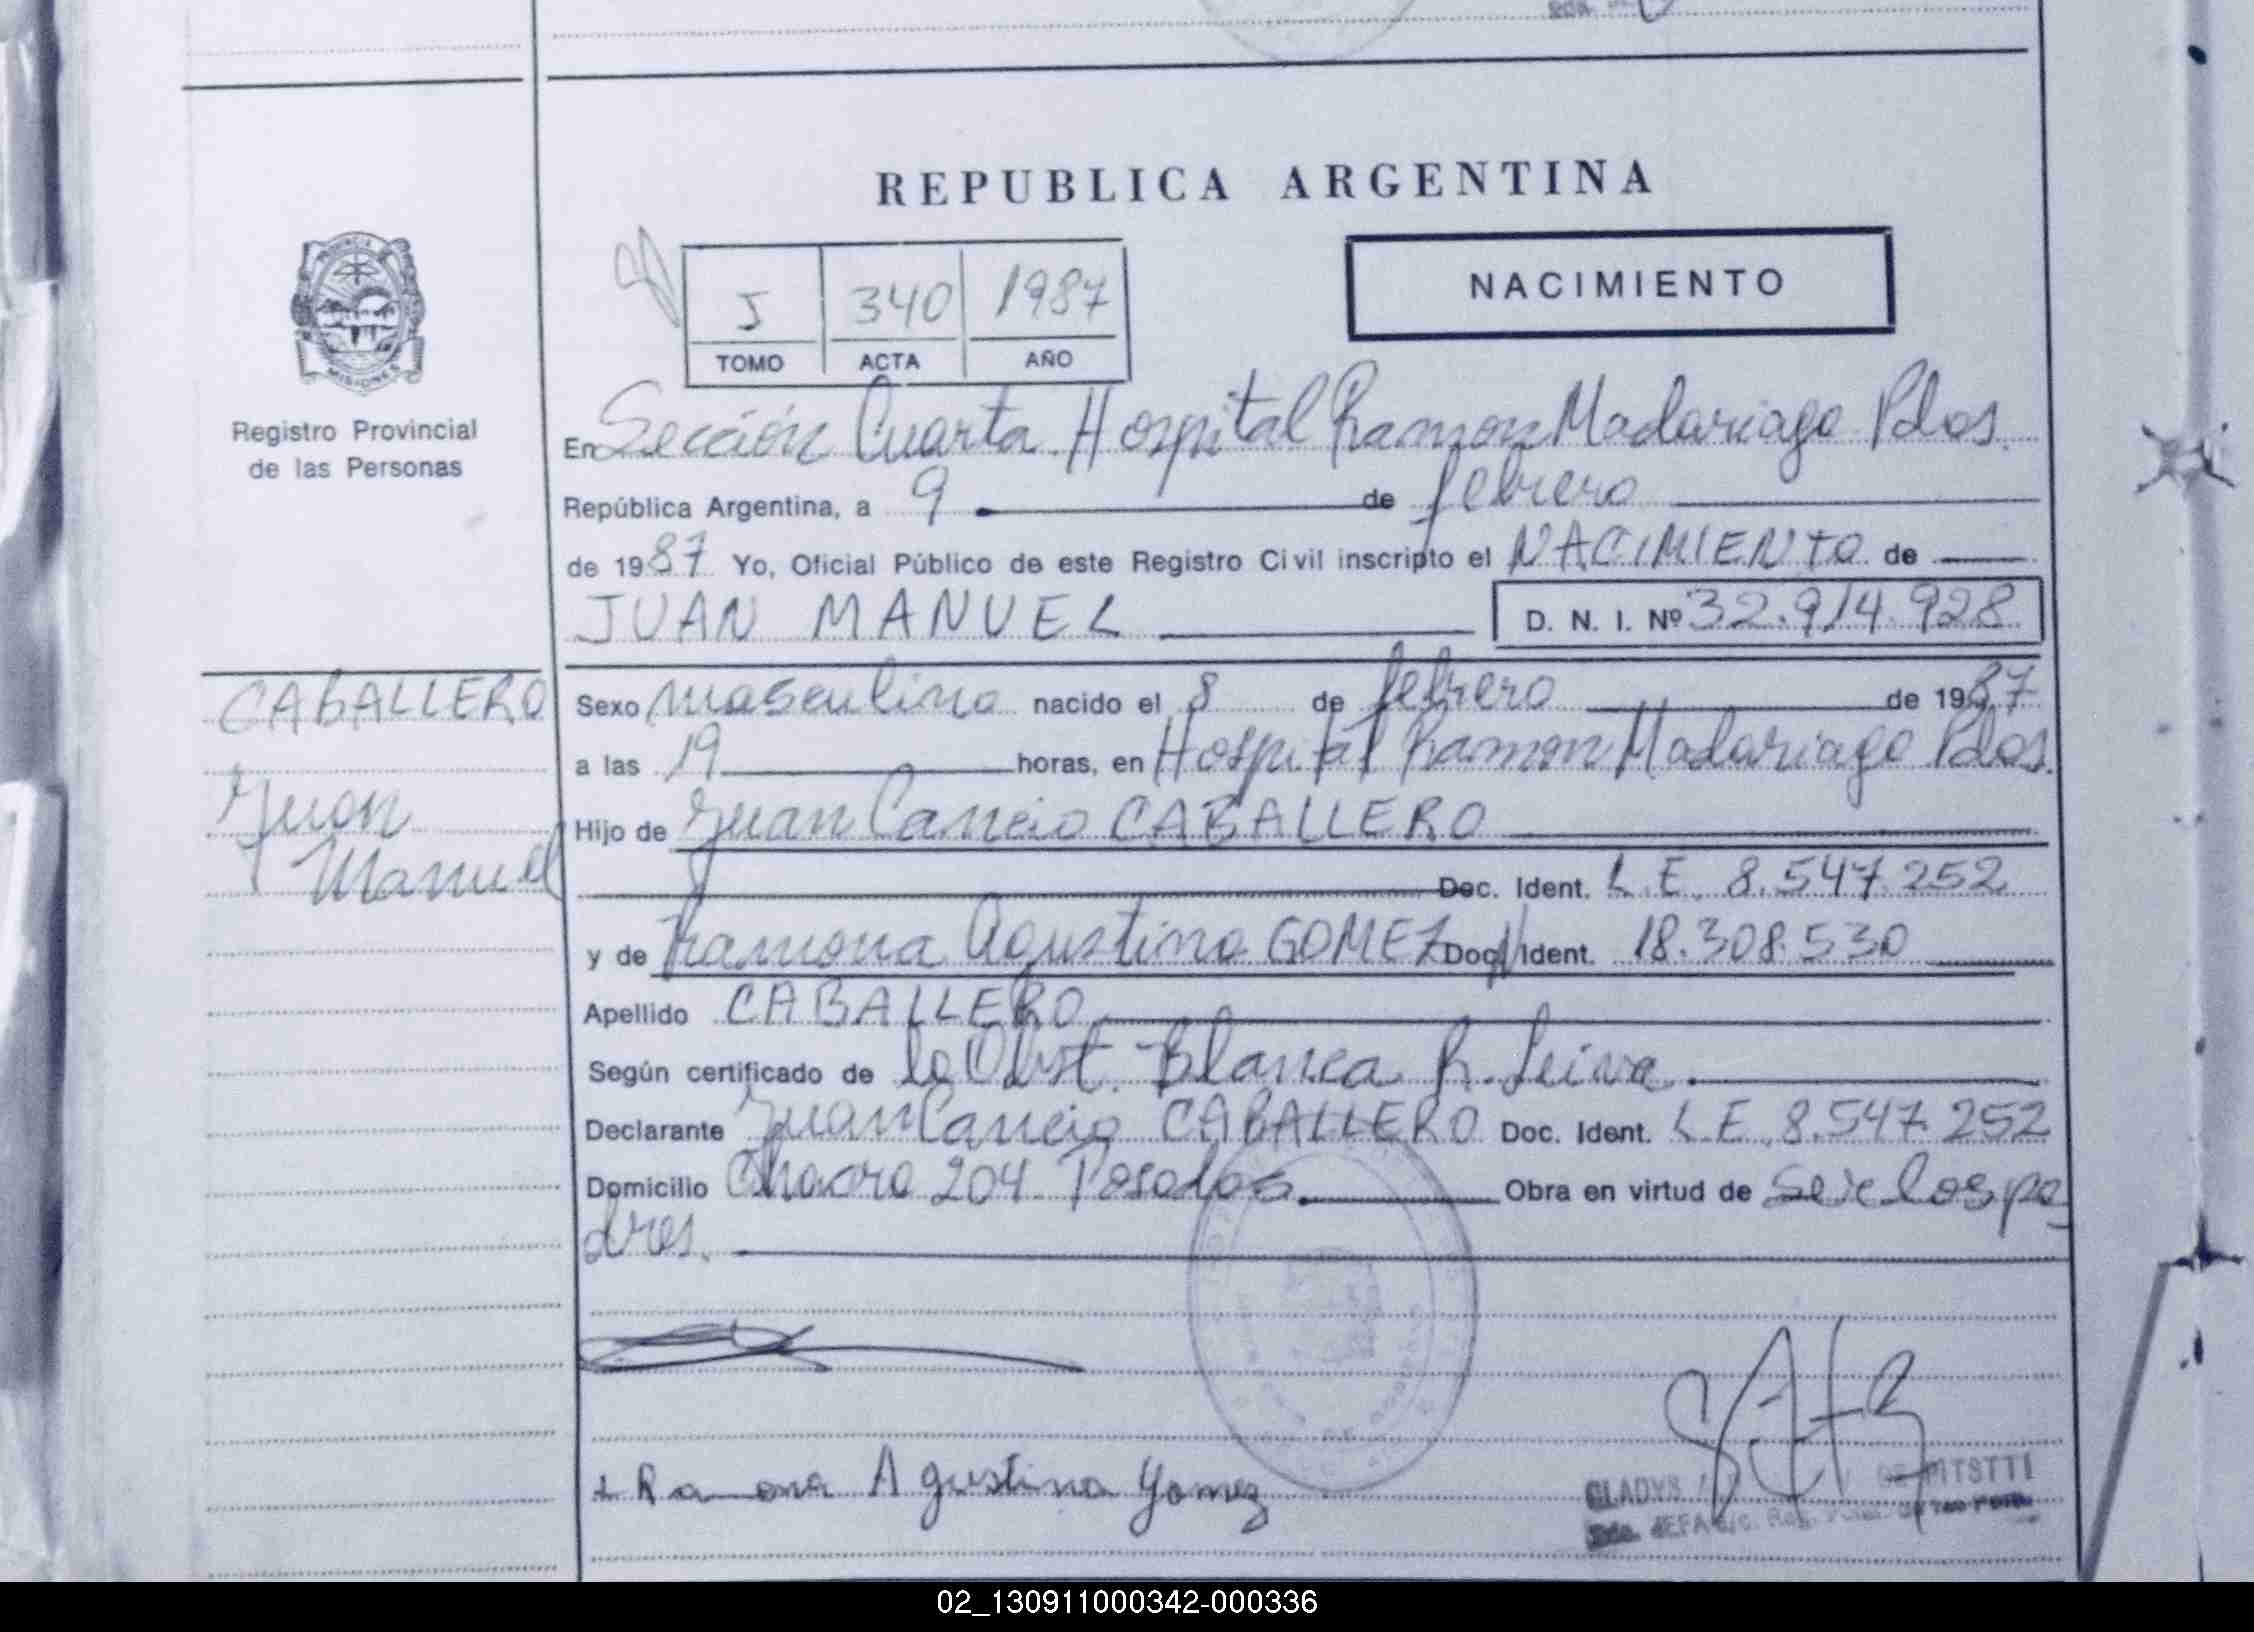 REPUBLICA ARGENTINA
NACIMIENTO
J 340 1987
TOMO ACTA AÑO
PROVINCIA
MISIONES
Registro Provincial
de las Personas
En Sección Cuarta Hospital Ramon Madariaga Pdas.
República Argentina, a 9 de febrero
de 1987 Yo, Oficial Público de este Registro Civil inscripto el NACIMIENTO de
JUAN MANUEL D. N. I. Nº 32.914.928
CABALLERO
Juan
Manuel
Sexo masculino nacido el 8 de febrero de 1987
a las 19 horas, en Hospital Ramon Madariaga Pdas.
Hijo de Juan Cancio CABALLERO
Doc. Ident. L.E. 8.547.252
y de Ramona Agustina GOMEZ Doc. Ident. 18.308.530
Apellido CABALLERO
Según certificado de la Obst. Blanca R. Leiva
Declarante Juan Cancio CABALLERO Doc. Ident. L.E. 8.547.252
Domicilio Chacra 204 Posadas Obra en virtud de ser los pa
dres.
+ Ramona Agustina Gomez
GLADYS
02_130911000342-000336